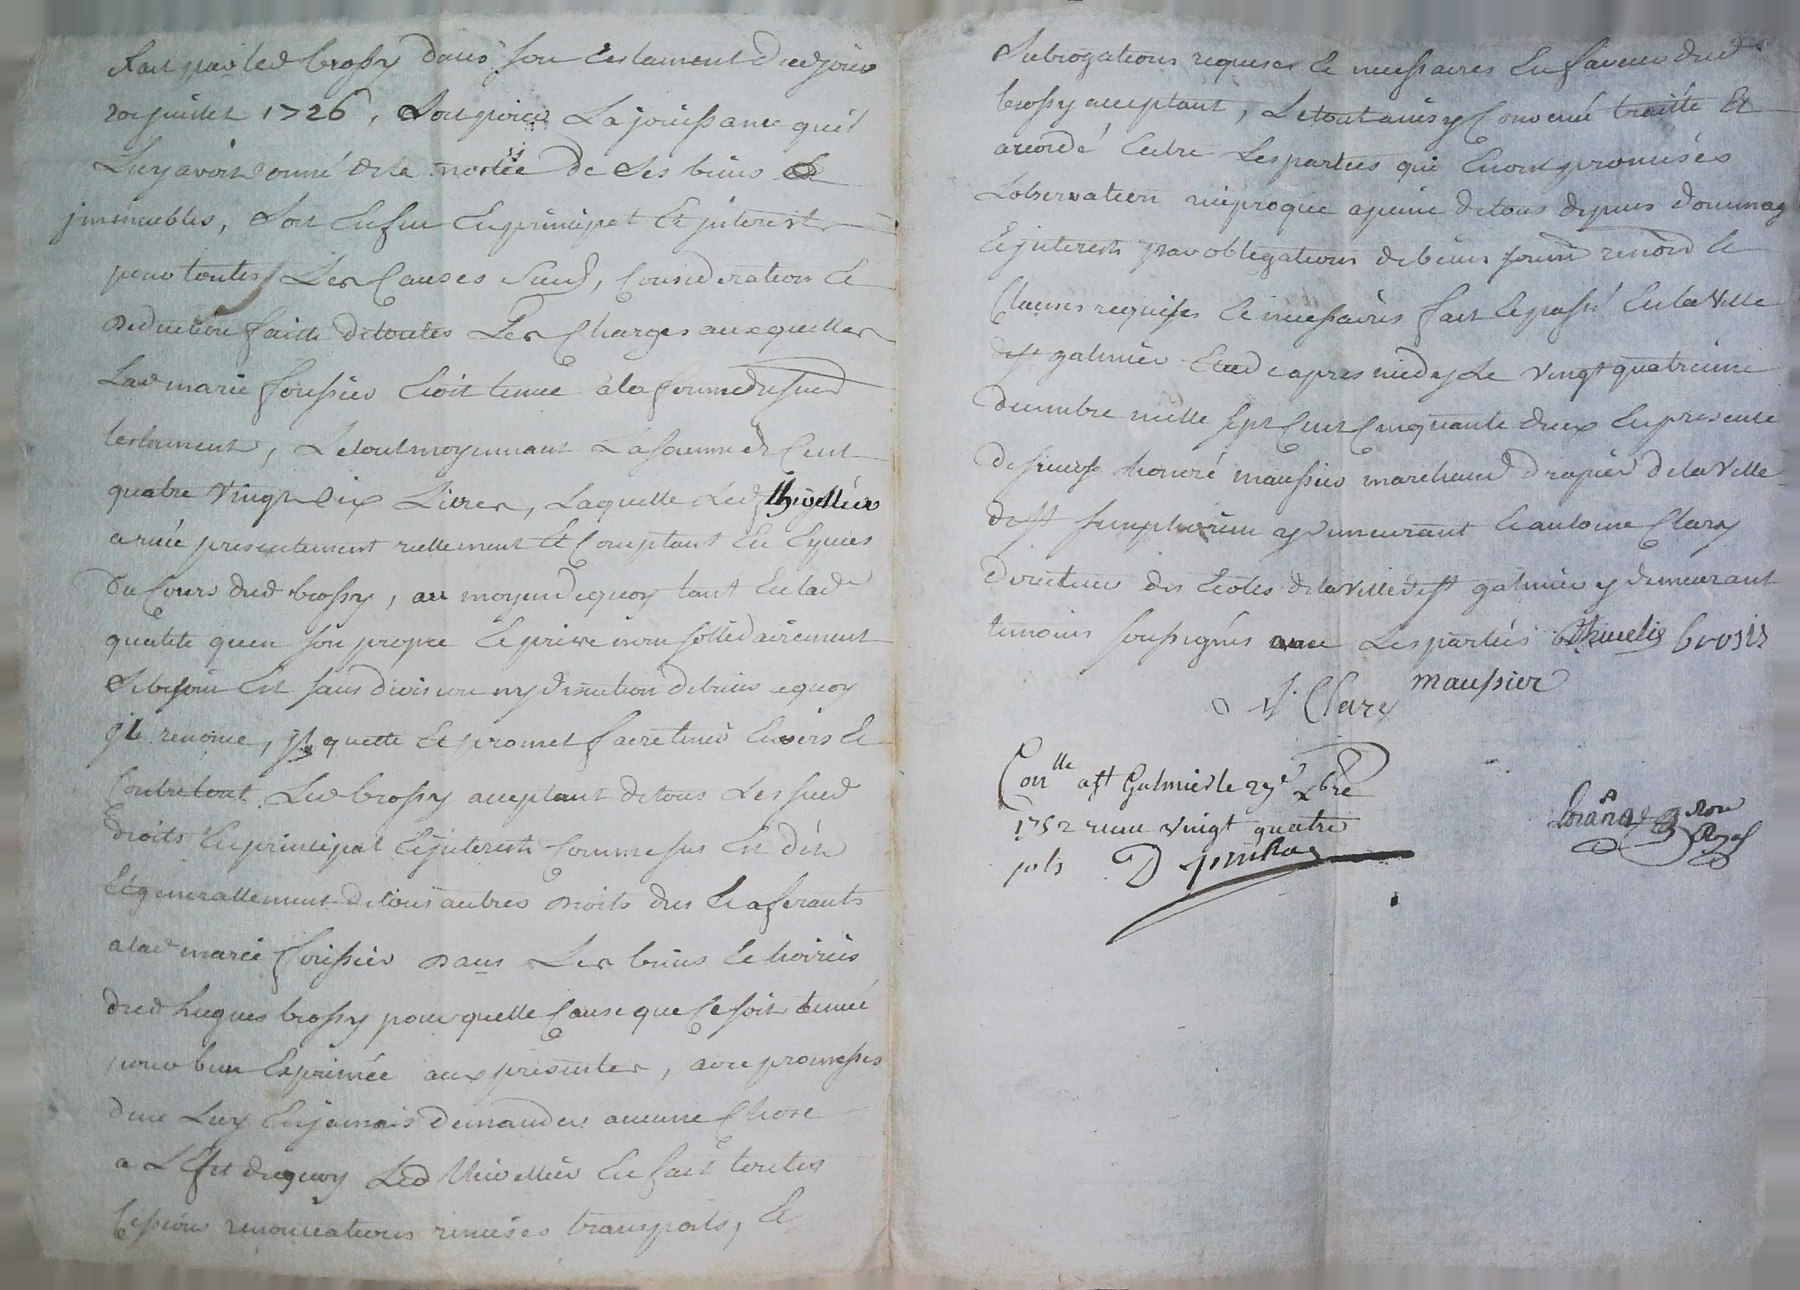 fait par led brossy dans son testament dud jour
vor juillet 1726, soit pour La jouissance quil
Luy avoit donné de la moitié de ses biens &
jmmeubles, soit Enfin En principal Et jnterests
pour toutes Les Causes susd, Consideration Et
deduction faitte detoutes Les Charges auxquelles
Lad marie foissier Etoit tenue à la forme dusud
testament, Letout moyennant La somme de Cent
quatre vingt dix Livres, Laquelle Led thivellier
a reçu presentement reellement Et Comptant En Espèces
du Cours dud brossy, au moyen dequoy tant En lad
qualité quen son propre Et privé nom sollidairement
Si besoin Est sans division ny discution debiens aquoy
jl renonce, jl quitte Et promet faire tenir Envers Et
Contre tout Led brossy acceptant de tous Les sud
droits En principal Et jnterests Comme sus Est dit
Et generallement de tous autres droits dus Et aferants
a lad marie foissier dans Les biens Et hoiries
dud hugues brossy pour quelle Cause que Ce soit tenue
pour bien Exprimée aux presentes, avec promesses
de ne Luy En jamais demander aucune Chose
a L'Efet dequoy Led thivellier En fait toutes
Cessions renonciations remises transports, Et
Subrogations requises Et necessaires En faveur dud
brossy acceptant, Letout ainsy Convenu traitté Et
acordé Entre Les parties qui En ont promis Les
Lobservation reciproque a peine de tous depens dommag
Et jnterests par obligations de biens soum renon Et
Clauses requises Et necessaires fait Et passé En la ville
de st galmier Etude apres midy Le vingt quatrieme
decembre mille sept Cent Cinquante deux En presence
de sieurs honoré maussier marchand drapier de la ville
de st simphorien y demeurant Et antoine Clary
directeur des Ecoles de la ville de st galmier y demeurant
temoins soussignés avec Les parties thivelier brossy
maussier
A Clary
Conlle a st Galmier le 29e xbre
1752 reçu vingt quatre
sols